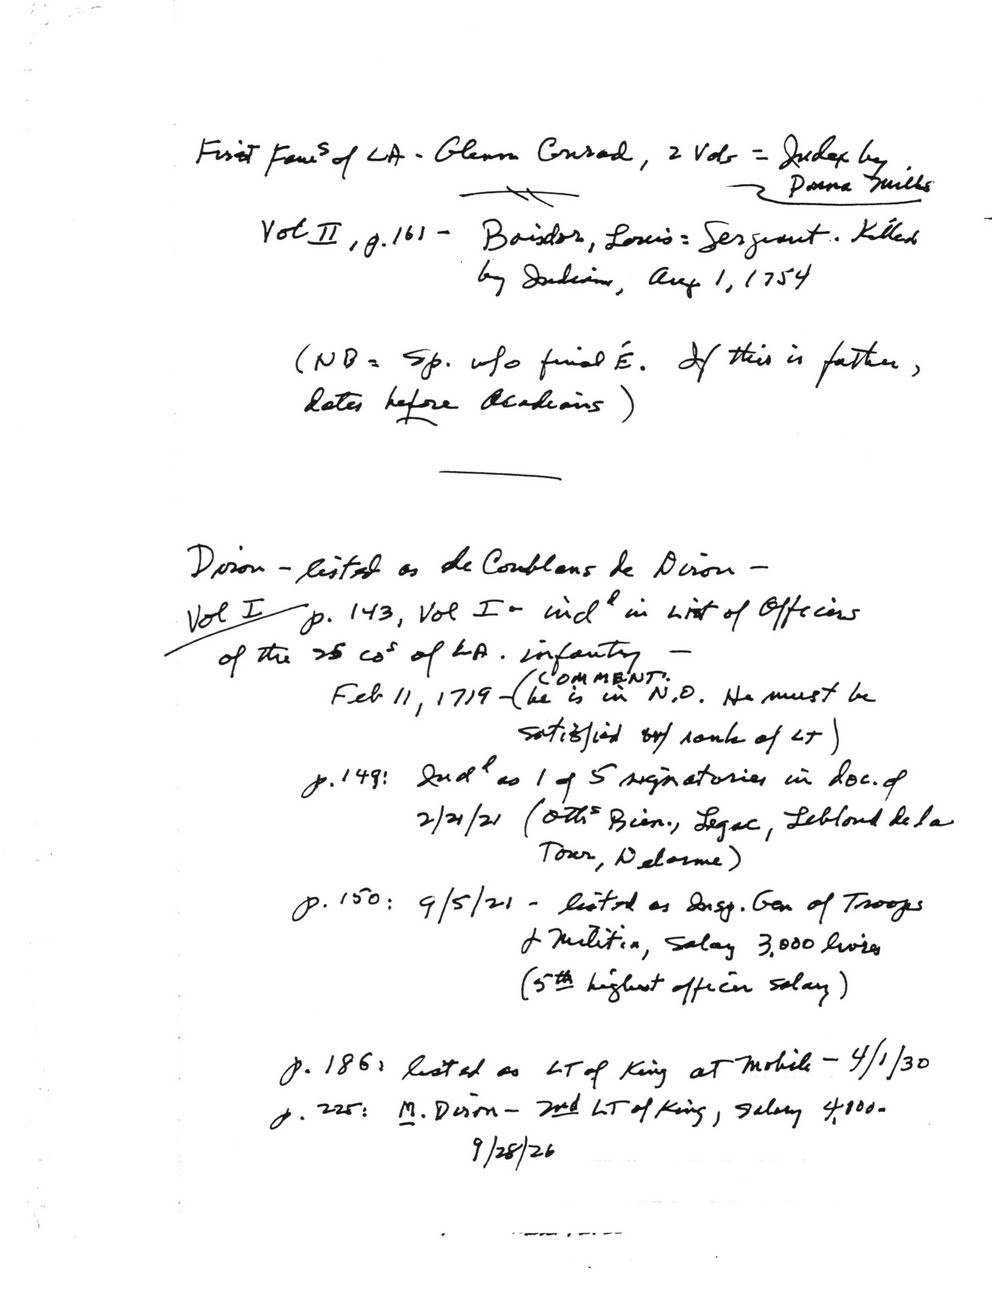 First Fams of LA - Glenn Conrad, 2 Vols = Index by
Donna Mills
Vol II, p.161 - Boisdor, Louis = Sergeant. Killed
by Indians, Aug 1, 1754
(NB = Sp. w/o final É. If this is father,
dates before Acadians)
Diron - listed as de Coublans de Diron -
Vol I p. 143, Vol I - incl in List of Officers
of the 25 cos of LA. infantry -
(COMMENT:
Feb 11, 1719 - he is in N.O. He must be
satisfied w/ rank of LT)
p.149: Incl as 1 of 5 signatories in doc. of
2/21/21 (Oths Bien., Legac, Leblond de la
Tour, Delorme)
p. 150: 9/5/21 - listed as Insp. Gen of Troops
& Militia, salary 3,000 livres
(5th highest officer salary)
p. 186: listed as LT of King at Mobile - 4/1/30
p. 225: M. Diron - 2nd LT of King, salary
9/28/26